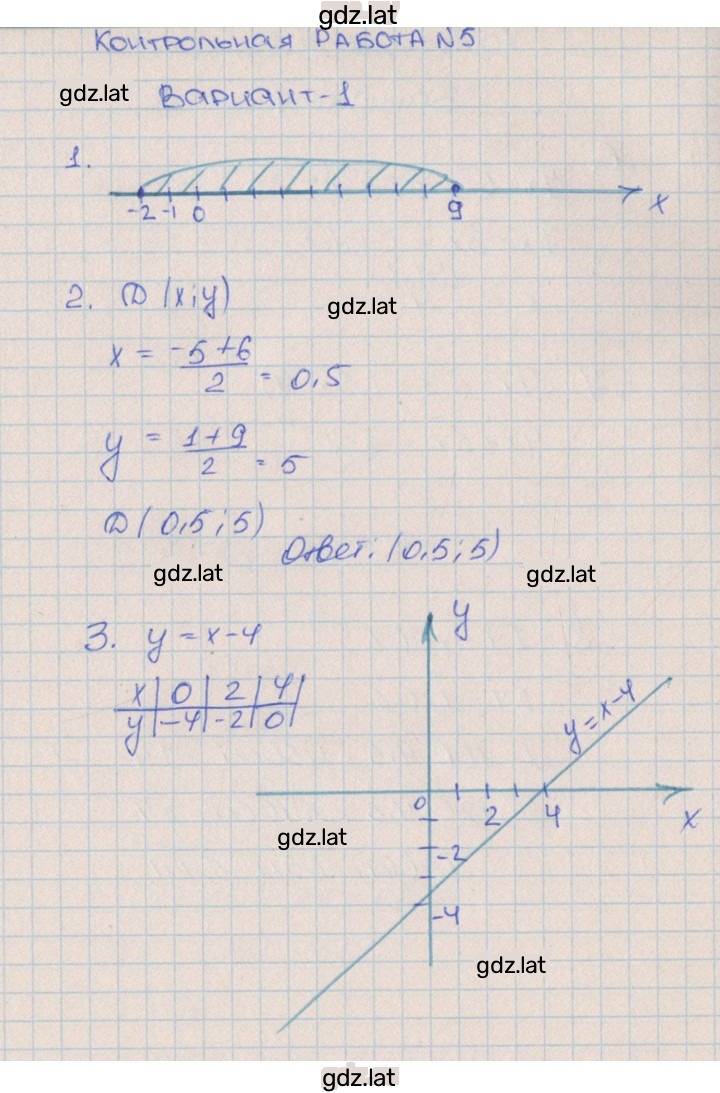 gdz.lat
КОНТРОЛЬНАЯ РАБОТА N5
gdz.lat
ВАРИАНТ-1
1.
-2 -1 0 9 x
2. D (x;y)
gdz.lat
x = -5+6/2 = 0,5
y = 1+9/2 = 5
D (0,5;5)
Ответ: (0,5;5)
gdz.lat
gdz.lat
3. y = x-4
y
x | 0 | 2 | 4 |
y | -4 | -2 | 0 |
y=x-4
0 2 4 x
gdz.lat
-2
-4
gdz.lat
gdz.lat